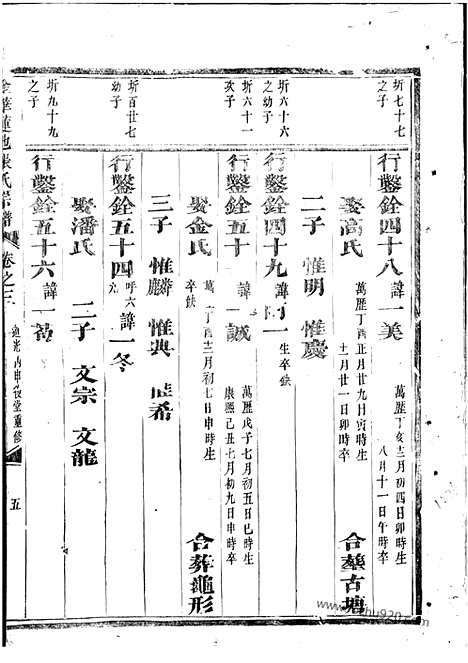 圻七十七
之子
行鑿銓四十八 諱一美 萬歷丁亥十二月初四日卯時生
八月十一日午時卒
娶馮氏 萬歷丁酉正月廿九日寅時生
十二月廿一日卯時卒 合葬古塘
二子 惟明 惟慶
圻六十六
之幼子
行鑿銓四十九 諱 一 生卒缺
圻六十一
次子
行鑿銓五十 諱一誠 萬歷戊子七月初五日巳時生
康熙己丑七月初九日申時卒
娶金氏 萬歷丁酉十二月初七日申時生
卒缺 合葬龜形
三子 惟麟 惟典 惟希
圻百廿七
幼子
行鑿銓五十四 諱一冬
行呼六
九
娶潘氏 二子 文宗 文龍
圻九十九
之子
行鑿銓五十六 諱一
金華蓮池張氏宗譜 卷之三 道光丙申 堂重修 五